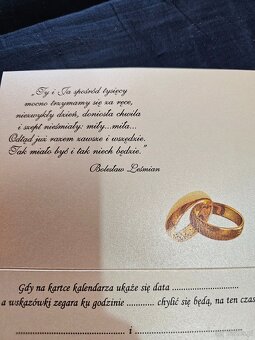 „Ty i Ja spośród tysięcy
mocno trzymamy się za ręce,
niezwykły dzień, doniosła chwila
i szept nieśmiały: miły...miła...
Odtąd już razem zawsze i wszędzie.
Tak miało być i tak niech będzie.”
Bolesław Leśmian
Gdy na kartce kalendarza ukaże się data ........................
a wskazówki zegara ku godzinie ........... chylić się będą, na ten czas
........................................ i ........................................